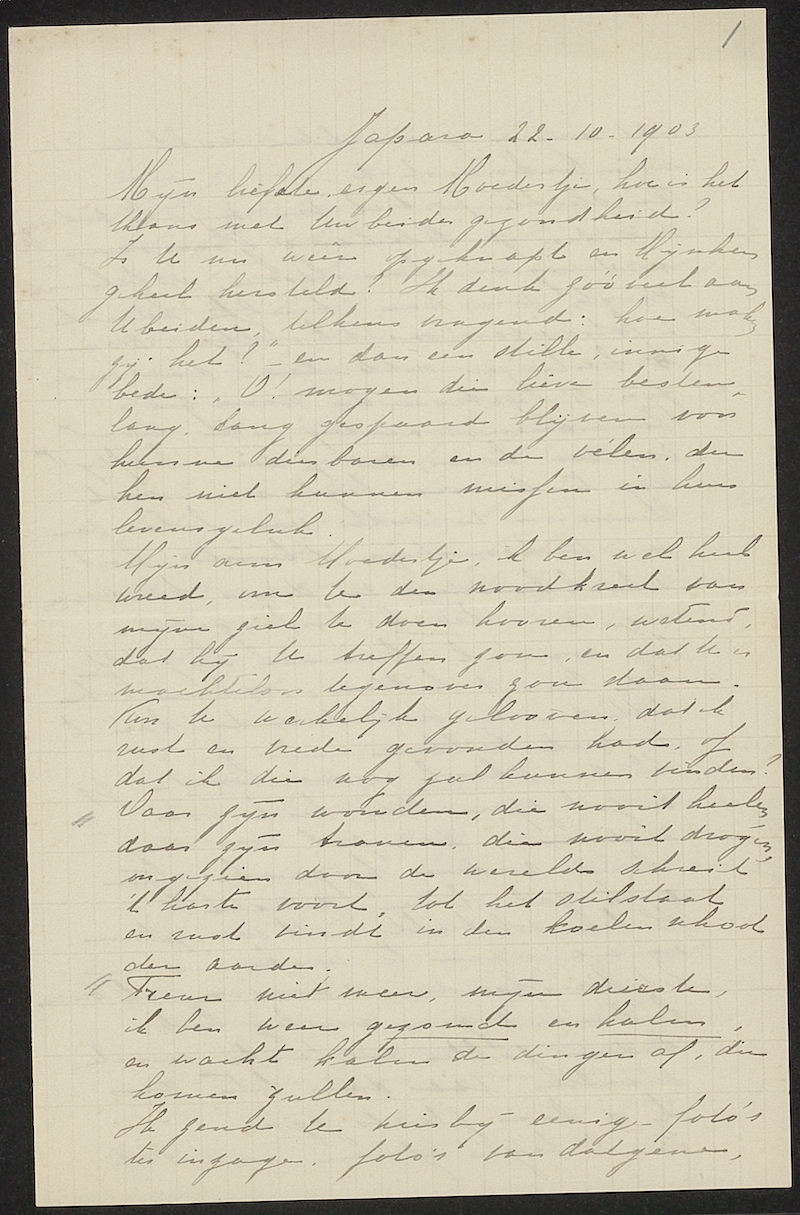 1
Japara 22-10-1903
Mijn liefste eigen Moedertje, hoe is het
thans met Uw beider gezondheid?
Is U nu weêr opgeknapt en Mijnheer
geheel hersteld? Ik denk zóó veel aan
U beiden, telkens vragend: hoe maken
zij het?" – en dan een stille, innige
bede: „O! mogen die lieve besten
lang, lang gespaard blijven voor
hunne dierbaren en de vélen, die
hen niet kunnen missen in hun
levensgeluk.
Mijn arm Moedertje, ik ben wel heel
wreed, om U den noodkreet van
mijne ziel te doen hooren, wetend,
dat hij U treffen zou, en dat U er
machteloos tegenover zou staan.
Kon U werkelijk gelooven, dat ik
rust en vrede gevonden had, of
dat ik die nog zal kunnen vinden?
" Daar zijn wonden, die nooit heelen,
daar zijn tranen, die nooit drogen,
ongezien door de wereld schreit
't harte voort, tot het stilstaat
en rust vindt in den koelen schoot
der aarde.
" Treur niet meer, mijn dierste,
ik ben weer gezond en kalm,
en wacht kalm de dingen af, die
komen zullen.
Ik zend U hierbij eenige foto's
ter inzage. foto's van datgene,